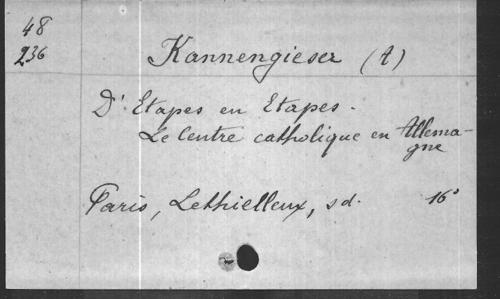 48
236
Kannengieser (A)
D'Etapes en Etapes.
Le Centre catholique en Allema-
gne
Paris, Lethielleux, sd. 16°